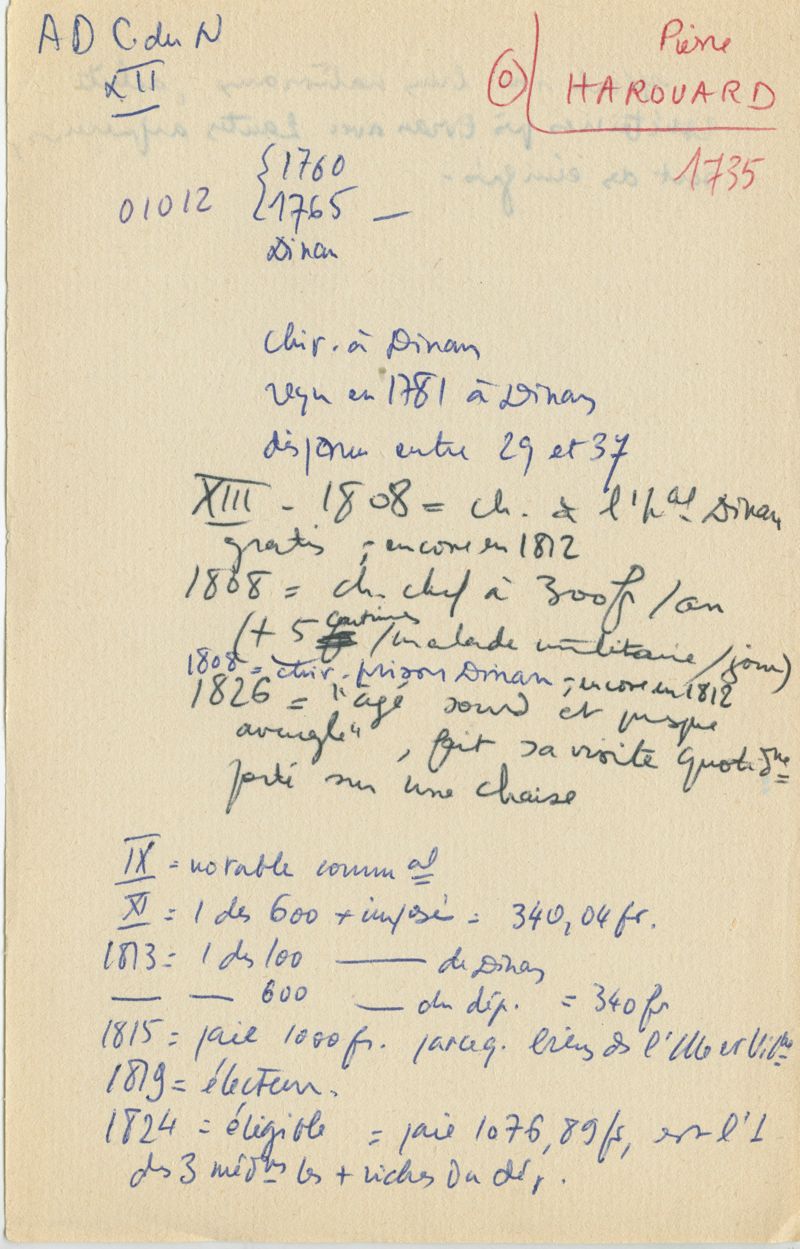 AD C. du N
XII
Pierre
O HAROUARD
1735
01012 { 1760
{ 1765 —
Dinan
chir. à Dinan
reçu en 1781 à Dinan
disparu entre 29 et 37
XIII - 1808 = ch. de l'hal Dinan
gratis ; encore en 1812
1808 = ch. chef à 300 fr/an
(+ 5 centimes/malade militaire/jour)
1808 = chir. prison Dinan ; encore en 1812
1826 = "âgé sourd et presque
aveugle", fait sa visite quotidne
porté sur une chaise
IX = notable commal
XI = 1 des 600 + imposés = 340,04 fr.
1813 = 1 des 100 — de Dinan
— — 600 — du dép. = 340 fr
1815 = paie 1000 fr. parceq. biens ds l'Ille et Vilne
1819 = électeur.
1824 = éligible = paie 1076,89 fr, est l'1
des 3 médns les + riches du dép.